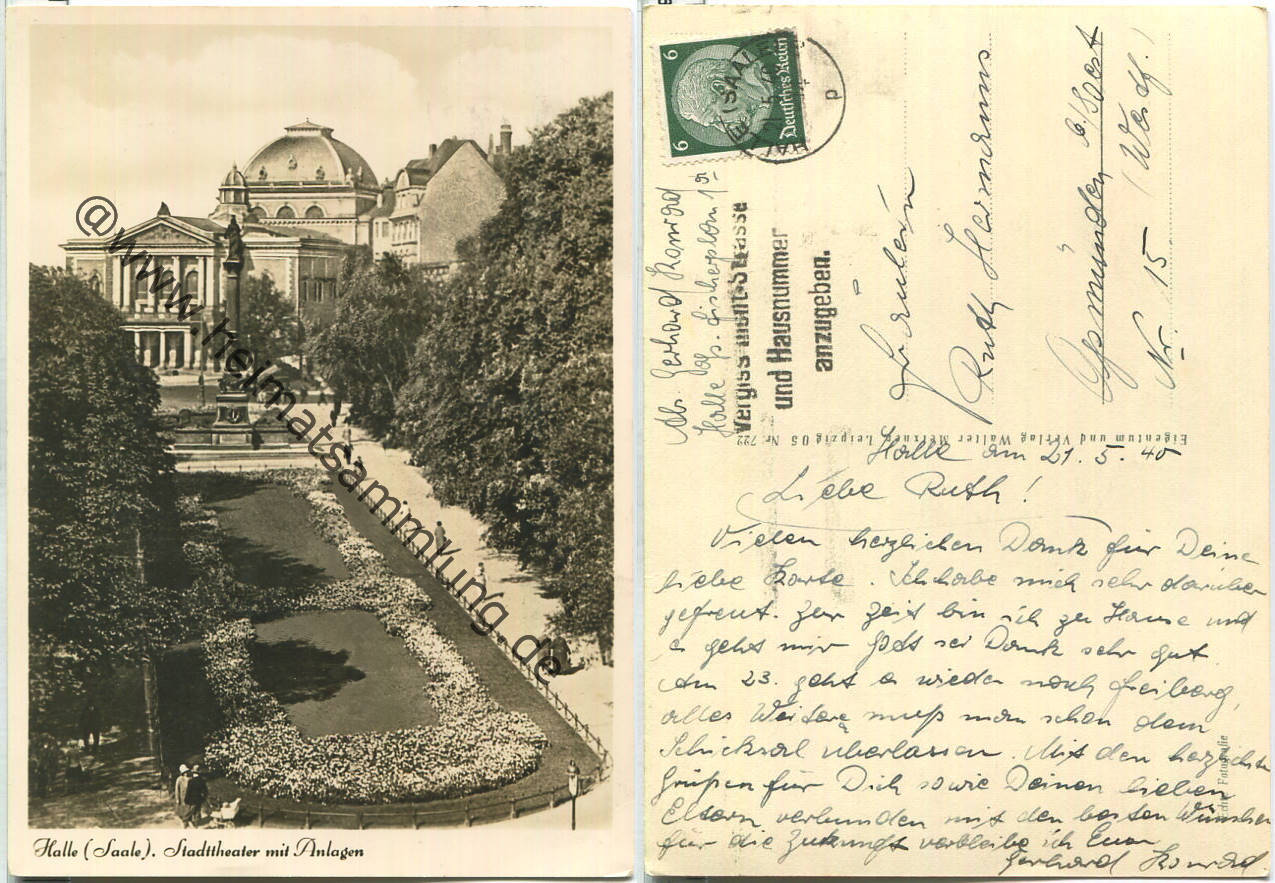 @www.heimatsammlung.de
Halle (Saale). Stadttheater mit Anlagen
6 6
Deutsches Reich
HALLE (SAALE)
p
Abs. Gerhard Konrad
Halle
15.
Vergiss nicht Strasse
und Hausnummer
anzugeben.
Fräulein
Ruth Hermanns
Gsmünden b/Soest
Nr. 15 (Westf.)
Eigentum und Verlag Walter Meixner Leipzig O5 Nr 722
Fotografie
Halle am 21.5.40
Liebe Ruth!
Vielen herzlichen Dank für Deine
liebe Karte. Ich habe mich sehr darüber
gefreut. Zur Zeit bin ich zu Hause und
es geht mir Gott sei Dank sehr gut.
Am 23. geht es wieder nach Freiberg,
alles Weitere muß man schon dem
Schicksal überlassen. Mit den herzlichsten
Grüßen für Dich sowie Deinen lieben
Eltern verbunden mit den besten Wünschen
für die Zukunft verbleibe ich Euer
Gerhard Konrad.